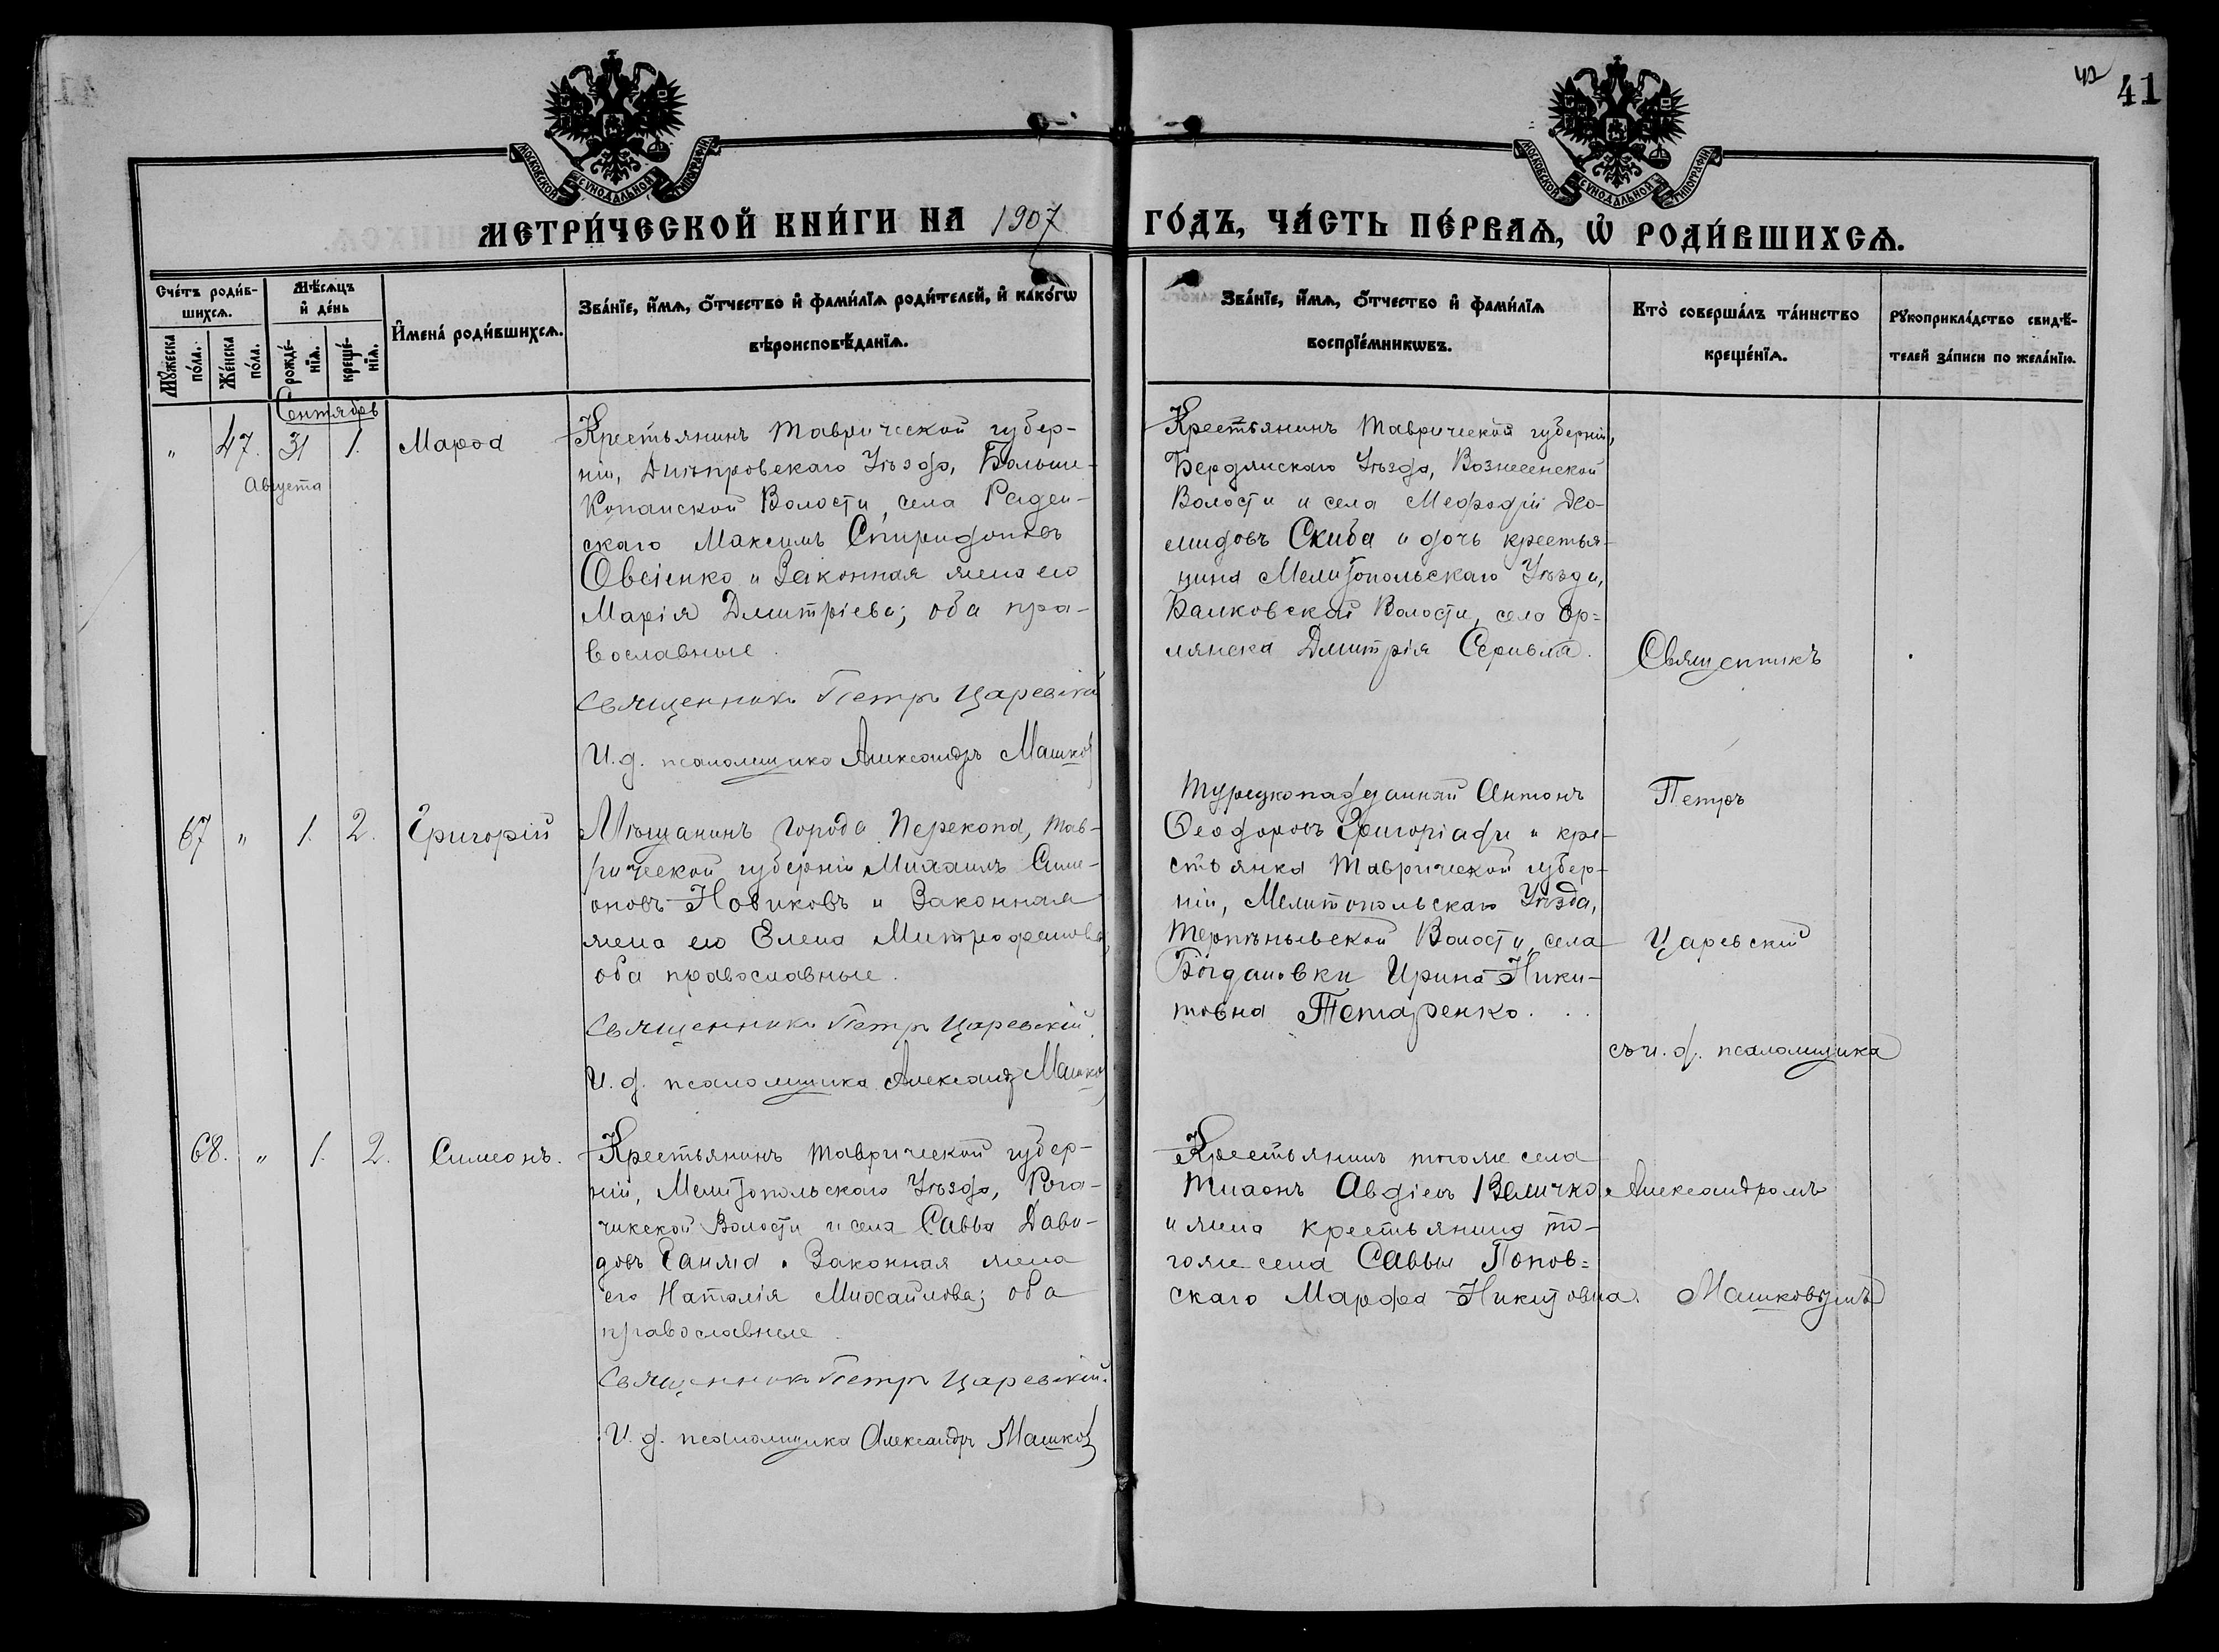 42
41
МОСКОВСКОЙ СѴНОДАЛЬНОЙ ТИПОГРАФІИ
МОСКОВСКОЙ СѴНОДАЛЬНОЙ ТИПОГРАФІИ
МЕТРИ́ЧЕСКОЙ КНИ́ГИ НА 1907 ГО́ДЪ, ЧА́СТЬ ПЕ́РВАѦ, Ѡ РОДИ́ВШИХСѦ.
Сче́тъ роди́в-
шихсѧ.
Мꙋ́жеска по́ла.
Же́нска по́ла.
Мѣ́сѧцъ
и де́нь
рожде́-
нїѧ.
креще́-
нїѧ.
Имена́ роди́вшихсѧ.
Зва́нїе, и́мѧ, ѻ́тчество и фами́лїѧ роди́телей, и како́гѡ
вѣроисповѣ́данїѧ.
Зва́нїе, и́мѧ, ѻ́тчество и фами́лїѧ
воспрїе́мникѡвъ.
Кто̀ соверша́лъ та́инство
креще́нїѧ.
Рꙋкоприкла́дство свидѣ́-
телей за́писи по жела́нїю.
Сентябрь
" 47. 31 1.
Августа
Марѳа
Крестьянинъ Таврической губер-
ніи, Днѣпровскаго Уѣзда, Больше-
Копанской Волости, села Раден-
скаго Максимъ Спиридоновъ
Овсіенко и Законная жена его
Марія Дмитріева; оба пра-
вославные.
Священникъ Петръ Царевскій
И. д. псаломщика Александръ Машков
Крестьянинъ Таврической губерніи,
Бердянскаго Уѣзда, Вознесенской
Волости и села Меѳодій Део-
мидовъ Скиба и дочь крестья-
нина Мелитопольскаго Уѣзда,
Балковской Волости, села Ор-
лянска Дмитрія
Священникъ
67 " 1. 2. Григорій
Мѣщанинъ города Перекопа, Тав-
рической губерніи Михаилъ Симе-
оновъ Новиковъ и Законная
жена его Елена Митрофанова;
оба православные.
Священникъ Петръ Царевскій.
И. д. псаломщика Александръ Машков
Турецкоподданный Антонъ
Ѳеодоровъ Григоріади и кре-
стьянка Таврической губер-
ніи, Мелитопольскаго Уѣзда,
Терпѣньевской Волости, села
Богдановки Ирина Ники-
товна Тетаренко.
Петръ
Царевскій
съ и. д. псаломщика
68. " 1. 2. Симеонъ.
Крестьянинъ Таврической губер-
ніи, Мелитопольскаго Уѣзда, Рога-
чикской Волости и села Савва Дави-
довъ Ганжа и Законная жена
его Наталія Михайлова; оба
православные.
Священникъ Петръ Царевскій.
И. д. псаломщика Александръ Машков
Крестьянинъ тогоже села
Авдіевъ Величко
и жена крестьянина то-
гоже села Саввы Попов-
скаго Марѳа Никитовна.
Александромъ
Машковымъ